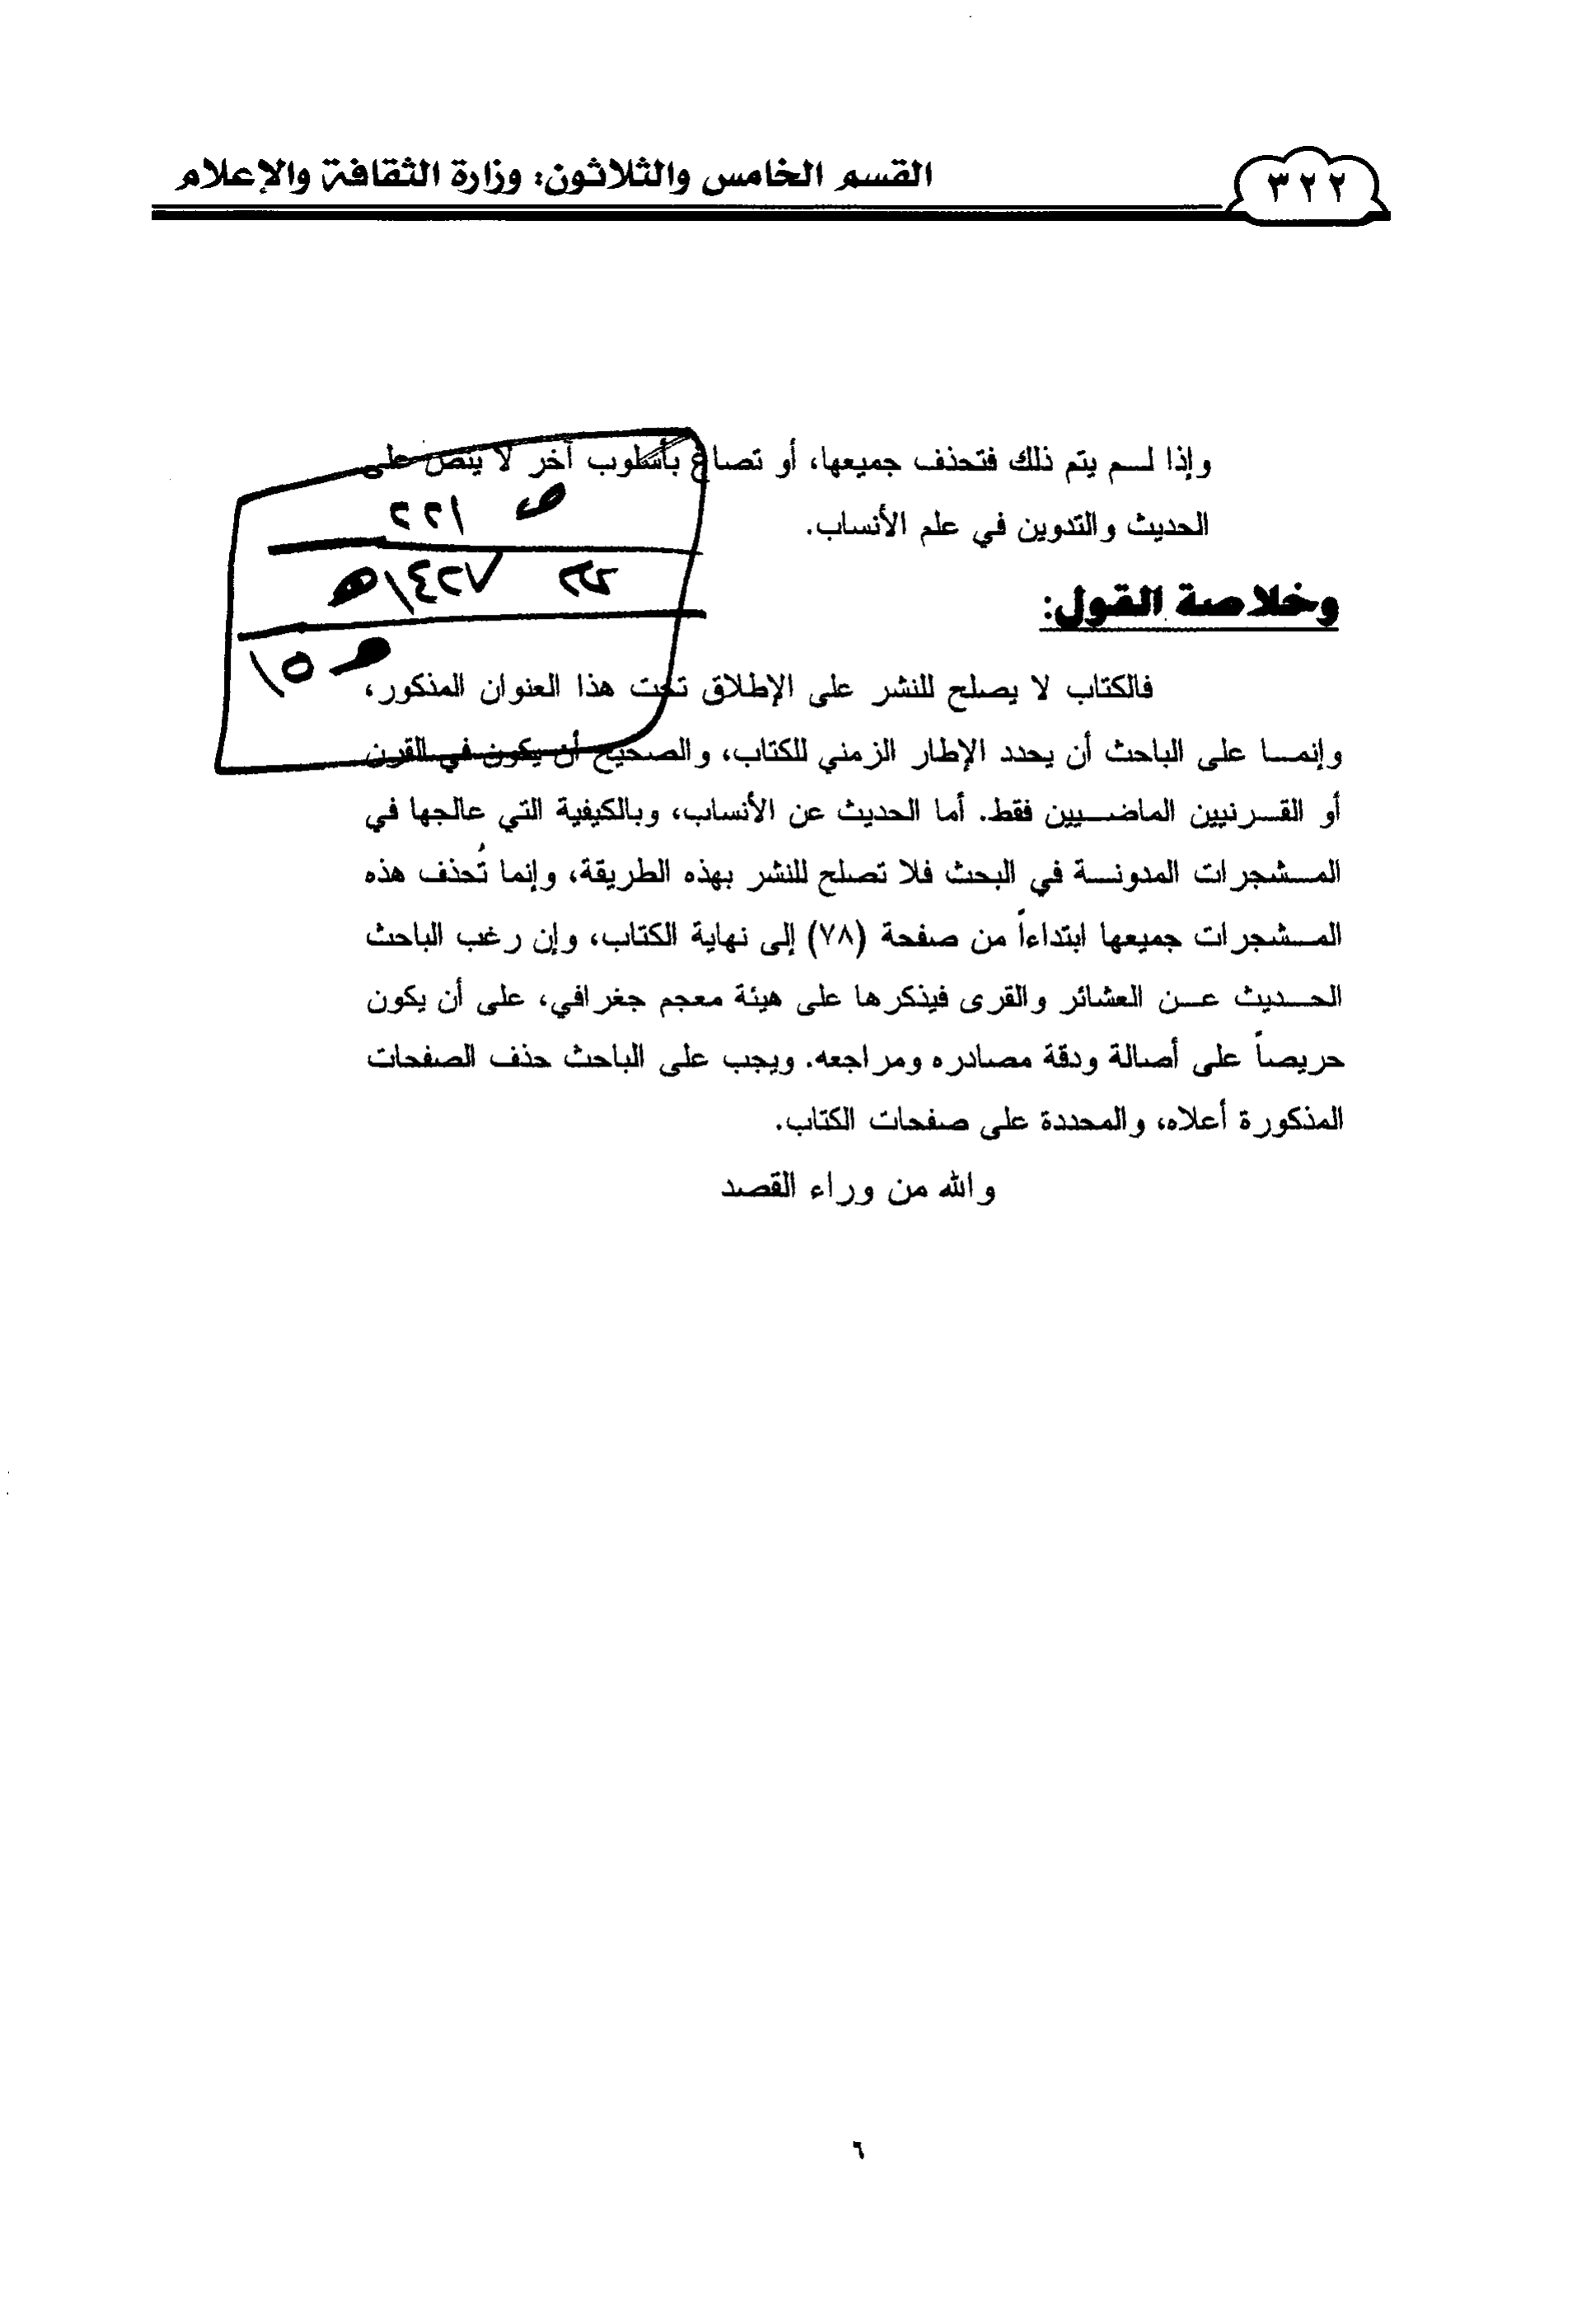 القسم الخامس والثلاثون: وزارة الثقافة والإعلام
٣٢٢
وإذا لم يتم ذلك فتحذف جميعها، أو تصاغ بأسلوب آخر لا ينص على
الحديث والتدوين في علم الأنساب.
ص ٢٢١
٧٢٤/هـ
وخلاصة القول:
فالكتاب لا يصلح للنشر على الإطلاق تحت هذا العنوان المذكور،
وإنما على الباحث أن يحدد الإطار الزمني للكتاب، والصحيح أن يكون في القرن
أو القرنيين الماضيين فقط. أما الحديث عن الأنساب، وبالكيفية التي عالجها في
المشجرات المدونة في البحث فلا تصلح للنشر بهذه الطريقة، وإنما تُحذف هذه
المشجرات جميعها ابتداءاً من صفحة (٧٨) إلى نهاية الكتاب، وإن رغب الباحث
الحديث عن العشائر والقرى فيذكرها على هيئة معجم جغرافي، على أن يكون
حريصاً على أصالة ودقة مصادره ومراجعه. ويجب على الباحث حذف الصفحات
المذكورة أعلاه، والمحددة على صفحات الكتاب.
والله من وراء القصد
٦